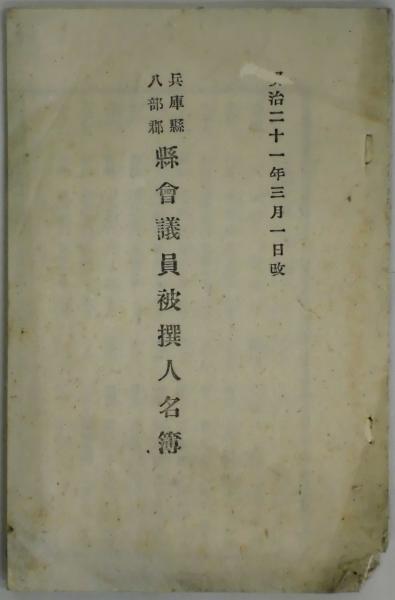 治二十一年三月一日改
兵庫縣
八部郡
縣會議員被撰人名簿